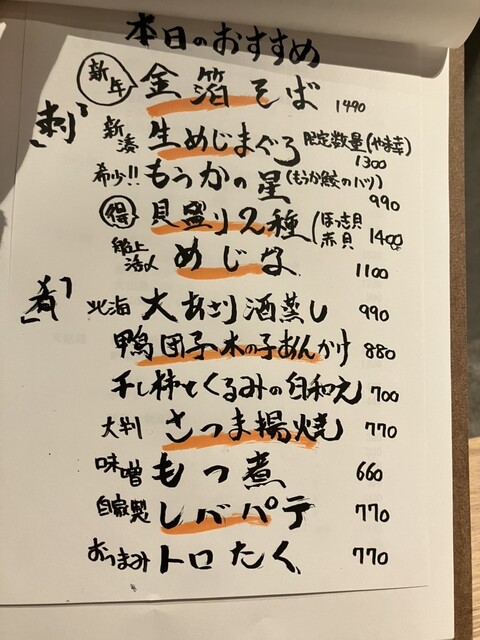 本日のおすすめ
新年 金箔そば 1490
「刺」
新湊 生めじまぐろ 限定数量(やま幸) 1300
希少!! もうかの星 (もうか鮫のハツ) 990
得 貝盛り2種 (ほっき貝 赤貝 1400
船上活〆 めじな 1100
「肴」
北海 大あさり酒蒸し 990
鴨団子 木の子あんかけ 880
干し柿とくるみの白和え 700
大判 さつま揚焼 770
味噌 もつ煮 660
自家製 レバパテ 770
おつまみ トロたく 770